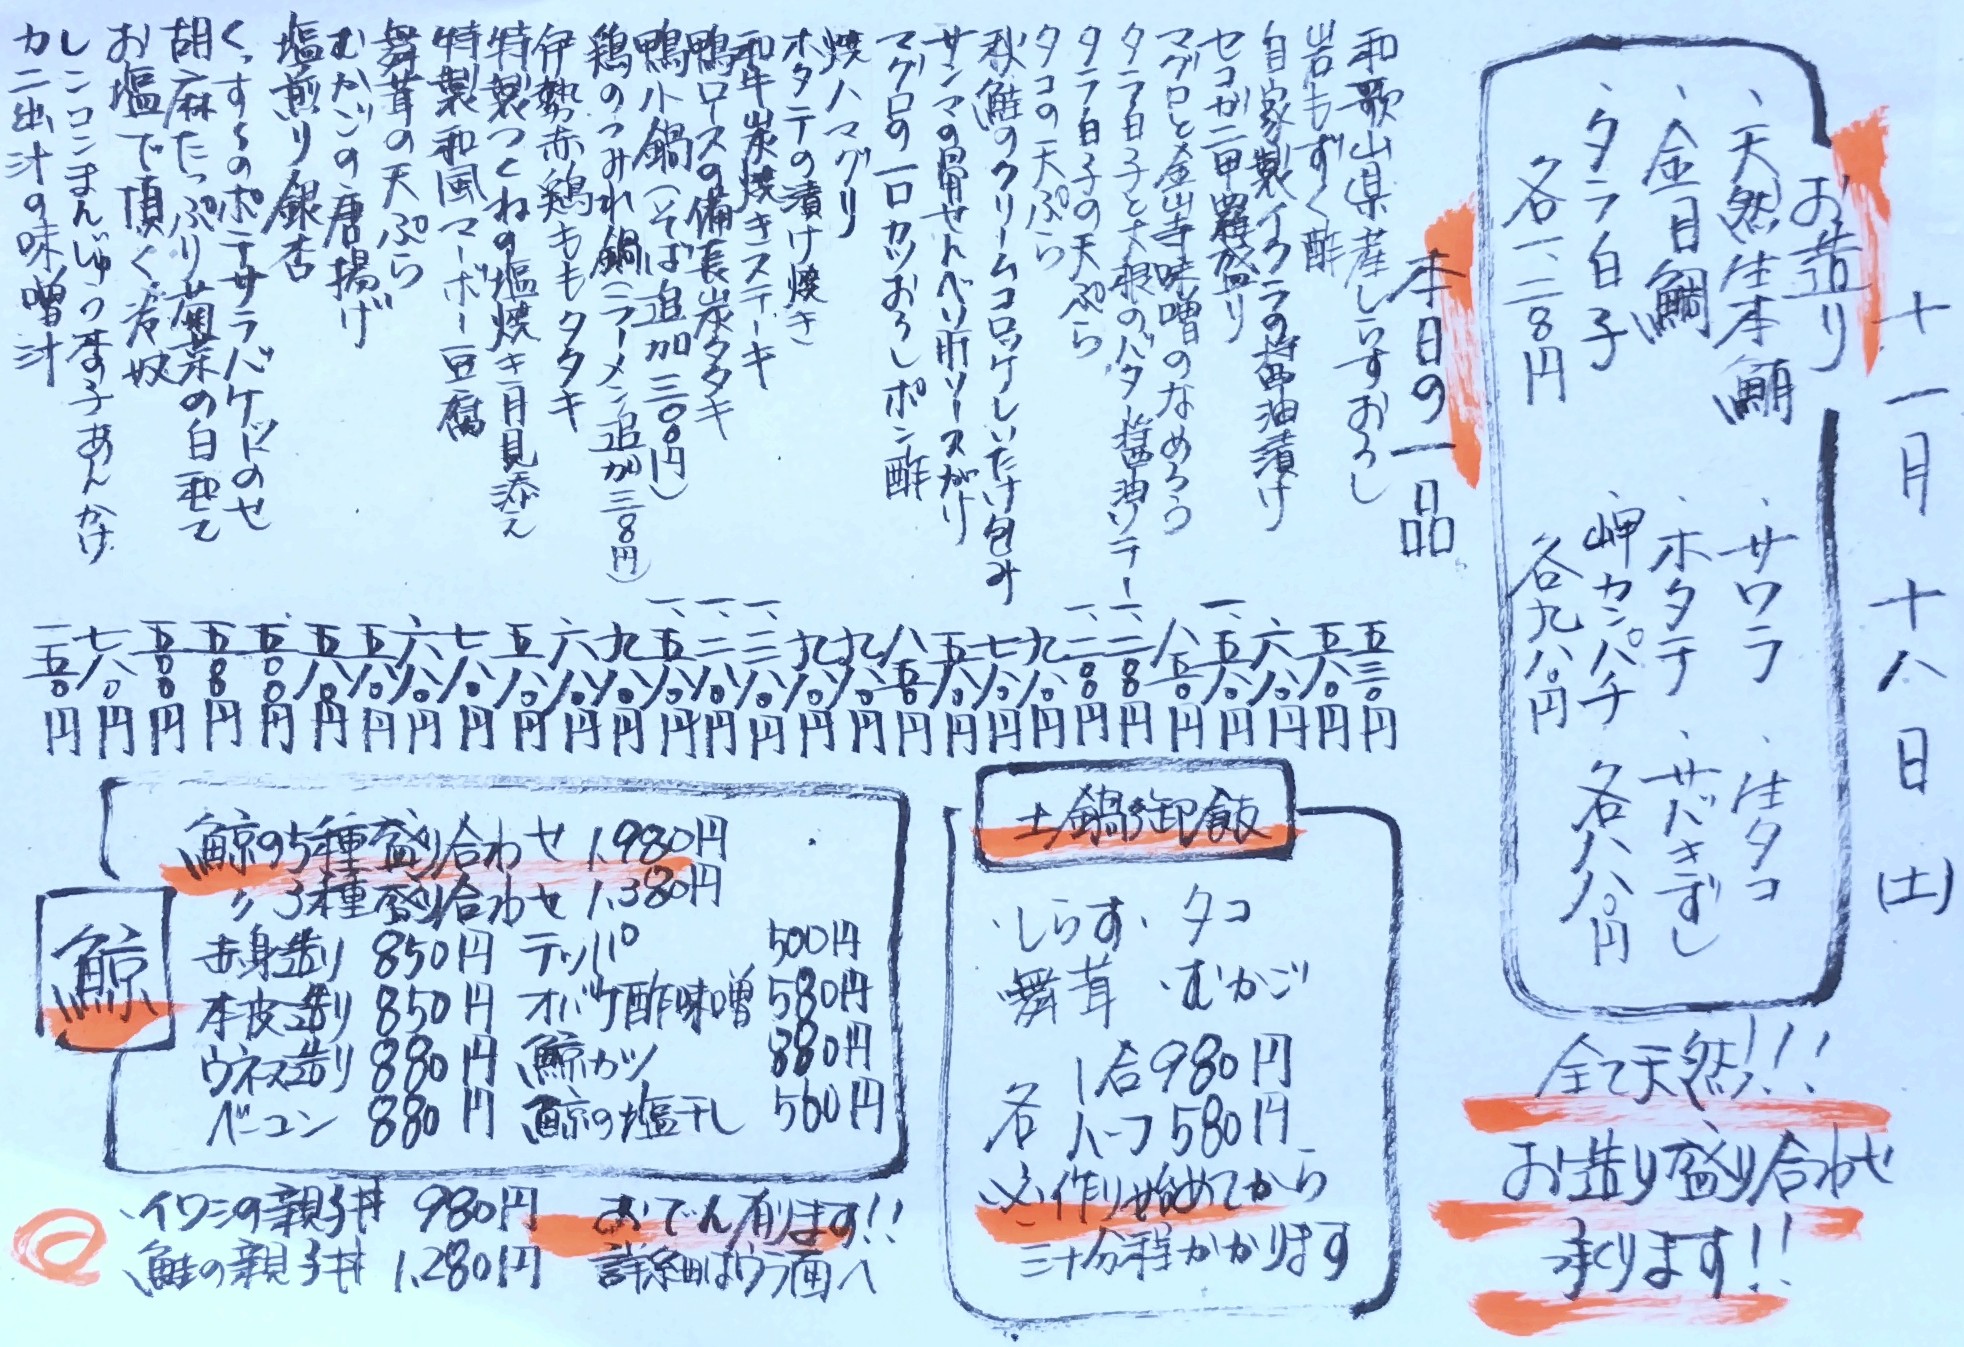 十一月十八日(土)
お造り
・天然生本鮪
・金目鯛
・タラ白子
各一、二八〇円
・サワラ
・ホタテ
・岬カンパチ
各九八〇円
・生タコ
・サバきずし
各八八〇円
全て天然!!!
お造り盛り合わせ
承ります!!
本日の一品
和歌山県産しらすおろし 五三〇円
岩もずく酢 五八〇円
自家製イクラの醤油漬け 六八〇円
セコガニ甲羅盛り 一、五八〇円
マグロと金山寺味噌のなめろう 八五〇円
タラ白子と大根のバタ醤油ソテー 一、二八〇円
タラ白子の天ぷら 一、二八〇円
タコの天ぷら 九八〇円
秋鮭のクリームコロッケしいたけ包み 七八〇円
サンマの骨せんべい肝ソースがけ 五八〇円
マグロの一口カツおろしポン酢 八五〇円
焼ハマグリ 九八〇円
ホタテの漬け焼き 九八〇円
和牛炭焼きステーキ 一、三八〇円
鴨ロースの備長炭タタキ 一、二八〇円
鴨小鍋(そば追加三〇〇円) 一、五八〇円
鶏のつみれ鍋(ラーメン追加三八〇円) 九八〇円
伊勢赤鶏ももタタキ 六八〇円
特製つくねの塩焼き月見添え 五八〇円
特製和風マーボー豆腐 七八〇円
舞茸の天ぷら 六八〇円
むかごの唐揚げ 五八〇円
塩煎り銀杏 五八〇円
くっすちのポテサラバケットのせ 五〇〇円
胡麻たっぷり菊菜の白和え 五八〇円
お塩で頂く冷奴 五〇〇円
レンコンまんじゅう 茸あんかけ 七八〇円
カニ出汁の味噌汁 三五〇円
土鍋御飯
・しらす・タコ
舞茸・むかご
各 1合980円
ハーフ580円
※作り始めてから
三十分程かかります
鯨
鯨の5種盛り合わせ 1,980円
〃3種盛り合わせ 1,380円
赤身造り 850円 テッパ 500円
本皮造り 850円 オバケ酢味噌 580円
ウネス造り 880円 鯨カツ 880円
ベーコン 880円 鯨の塩干し 560円
・イワシの親子丼 980円
・鮭の親子丼 1,280円
おでん有ります!!
詳細はウラ面へ